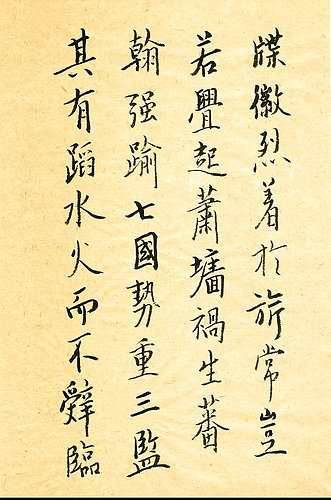 牒徽烈着於旂常豈
若舋起蕭墻禍生蕃
翰强踰七國勢重三監
其有蹈水火而不辭臨